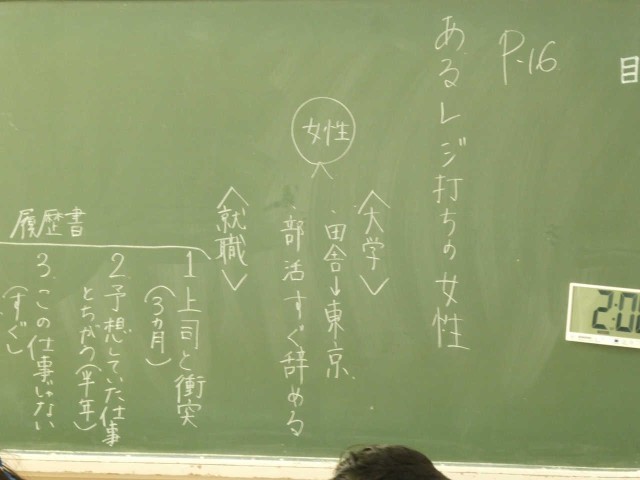 目
P-16
あるレジ打ちの女性
女性
〈大学〉
・田舎→東京
・部活すぐ辞める
〈就職〉
履歴書
1 上司と衝突
(3ヵ月)
2 予想していた仕事
とちがう(半年)
3. この仕事じゃない
(すぐ)